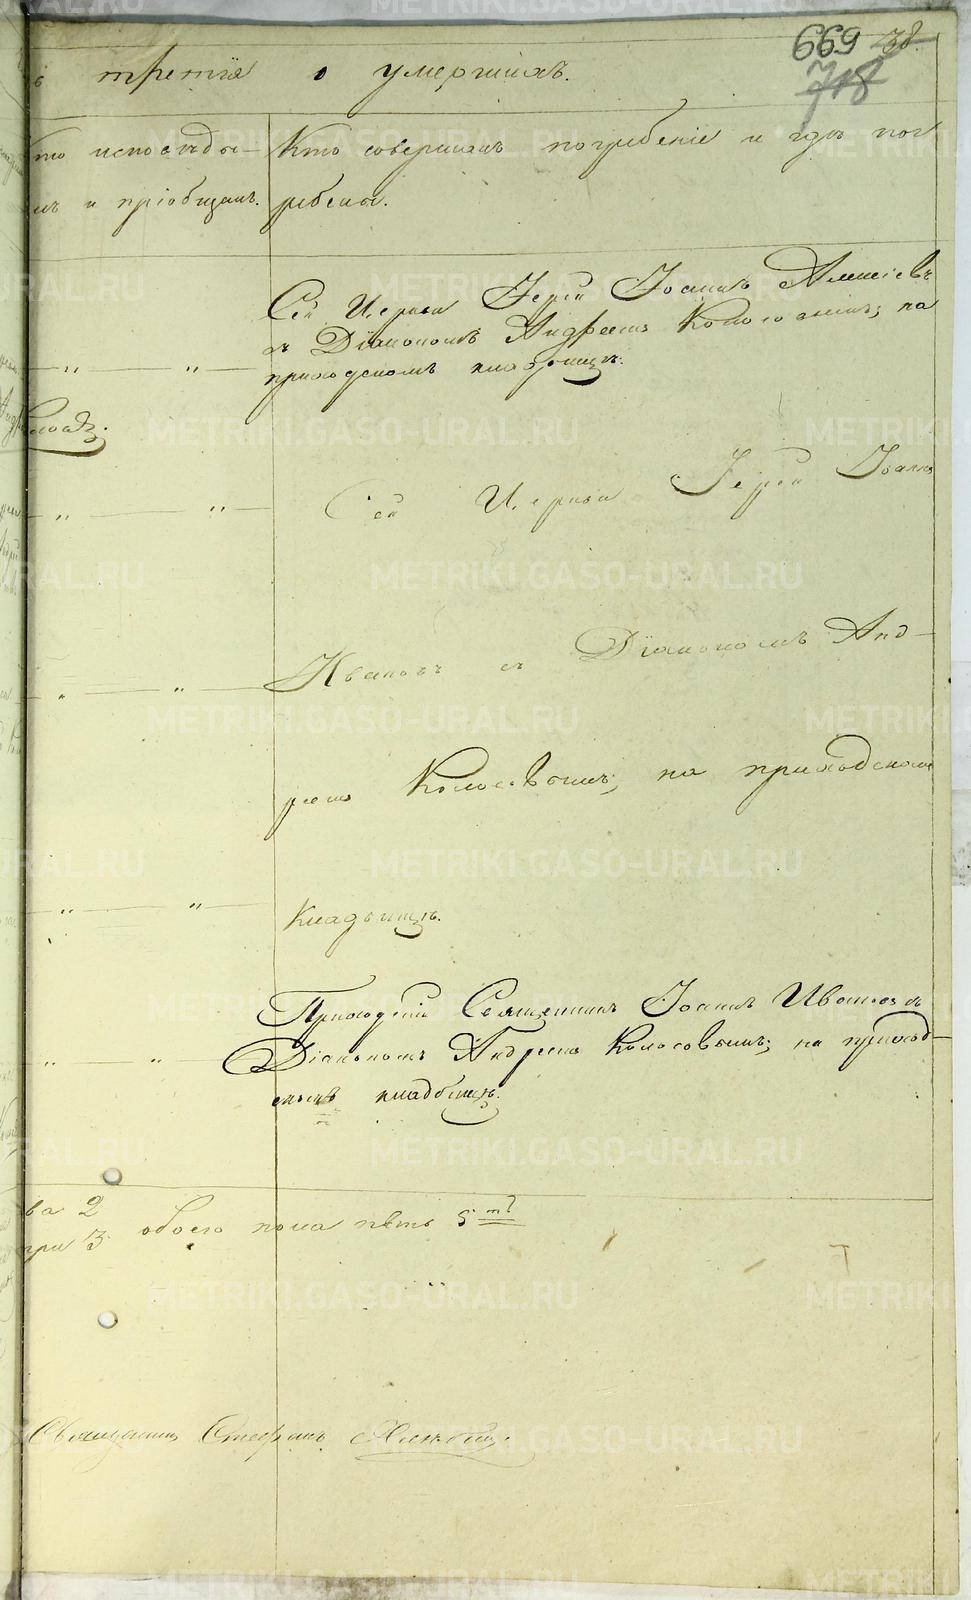 669 38.
718
ь третія о умершихъ.
то исповѣды-
лъ и пріобщалъ.
Кто совершалъ погребеніе и гдѣ пог
ребены.
Сей Церкви Іерей Іоаннъ
съ Діакономъ Андреемъ Колосовымъ; на
приходскомъ кладбищѣ.
Сей Церкви Іерей Іоаннъ
Ивановъ съ Діакономъ Анд-
реемъ Колосовымъ; на приходскомъ
Кладбищѣ.
Приходскій Священникъ Іоаннъ Ивановъ съ
Діакономъ Андреемъ Колосовымъ; на приход-
скомъ кладбищѣ.
ва 2
три 3 обоего пола пять 5
Священникъ Стефанъ
METRIKI.GASO-URAL.RU